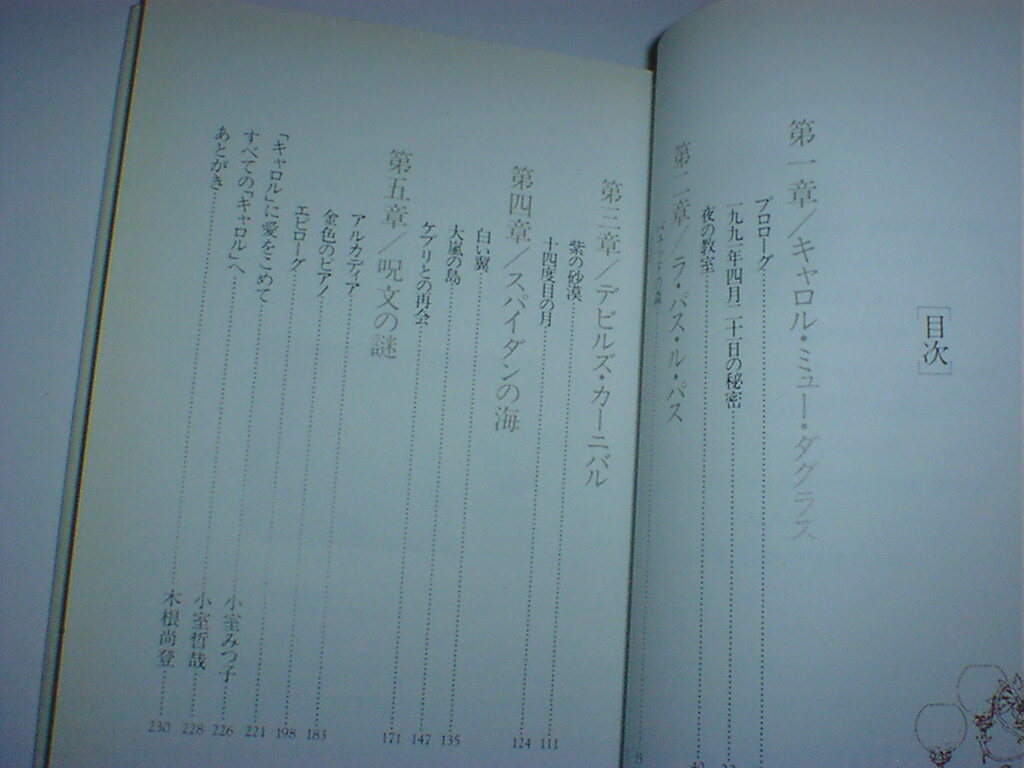 [目次]
第一章／キャロル・ミュー・ダグラス
プロローグ
一九九一年四月二十一日の秘密
夜の教室
第二章／ラ・パス・ル・パス
第三章／デビルズ・カーニバル
紫の砂漠 111
十四度目の月 124
第四章／スパイダンの海
白い翼 135
大嵐の島 147
ケプリとの再会 171
第五章／呪文の謎
アルカディア 183
金色のピアノ 198
エピローグ 221
「キャロル」に愛をこめて 小室みつ子 226
すべての「キャロル」へ 小室哲哉 228
あとがき 木根尚登 230